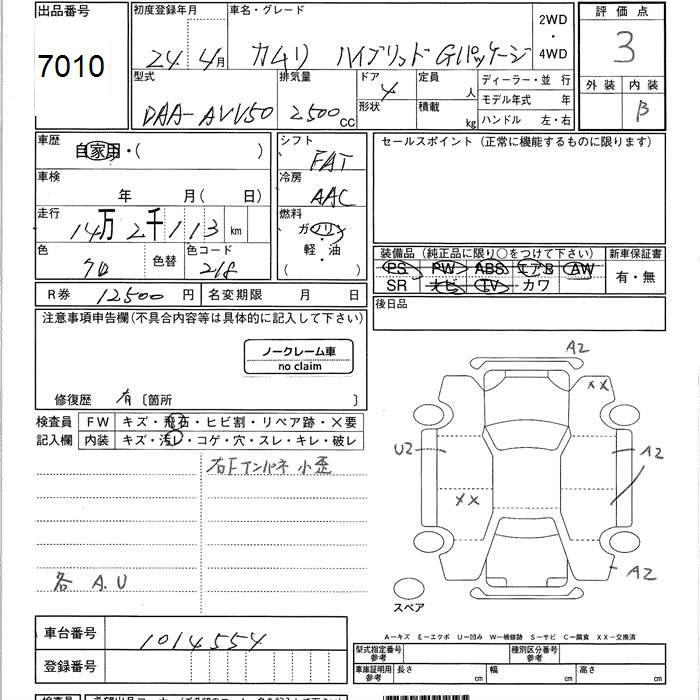 出品番号
7010
初度登録年月
24年4月
車名・グレード
カムリ ハイブリッド Gパッケージ
2WD
・
4WD
評価点
3
外装 内装
B
型式
DAA-AVV50
排気量
2500CC
ドア
4
形状
定員
人
積載
kg
ディーラー・並行
モデル年式 年
ハンドル 左・右
車歴
自家用・( )
シフト
FAT
セールスポイント (正常に機能するものに限ります)
車検
年 月( 日)
冷房
AAC
走行
14万2千113km
燃料
ガソリン
・
軽・油
( )
色
クロ
色替
色コード
218
装備品 (純正品に限り○をつけて下さい)
PS PW ABS エアB AW
SR ナビ TV カワ
新車保証書
有・無
R券 12500円
名変期限 月 日
後日品
注意事項申告欄(不具合内容等は具体的に記入して下さい)
ノークレーム車
no claim
修復歴 有〔箇所 〕
検査員
記入欄
FW キズ・飛石・ヒビ割・リペア跡・×要
内装 キズ・汚レ・コゲ・穴・スレ・キレ・破レ
右Fインパネ小歪
各 A.U
A2
XX
U2
A2
XX
A2
スペア
A―キズ E―エクボ U―凹み W―補修跡 S―サビ C―腐食 XX―交換済
車台番号
1014554
登録番号
型式指定番号
参考
種別区分番号
参考
車庫証明用
参考
長さ cm
幅 cm
高さ cm